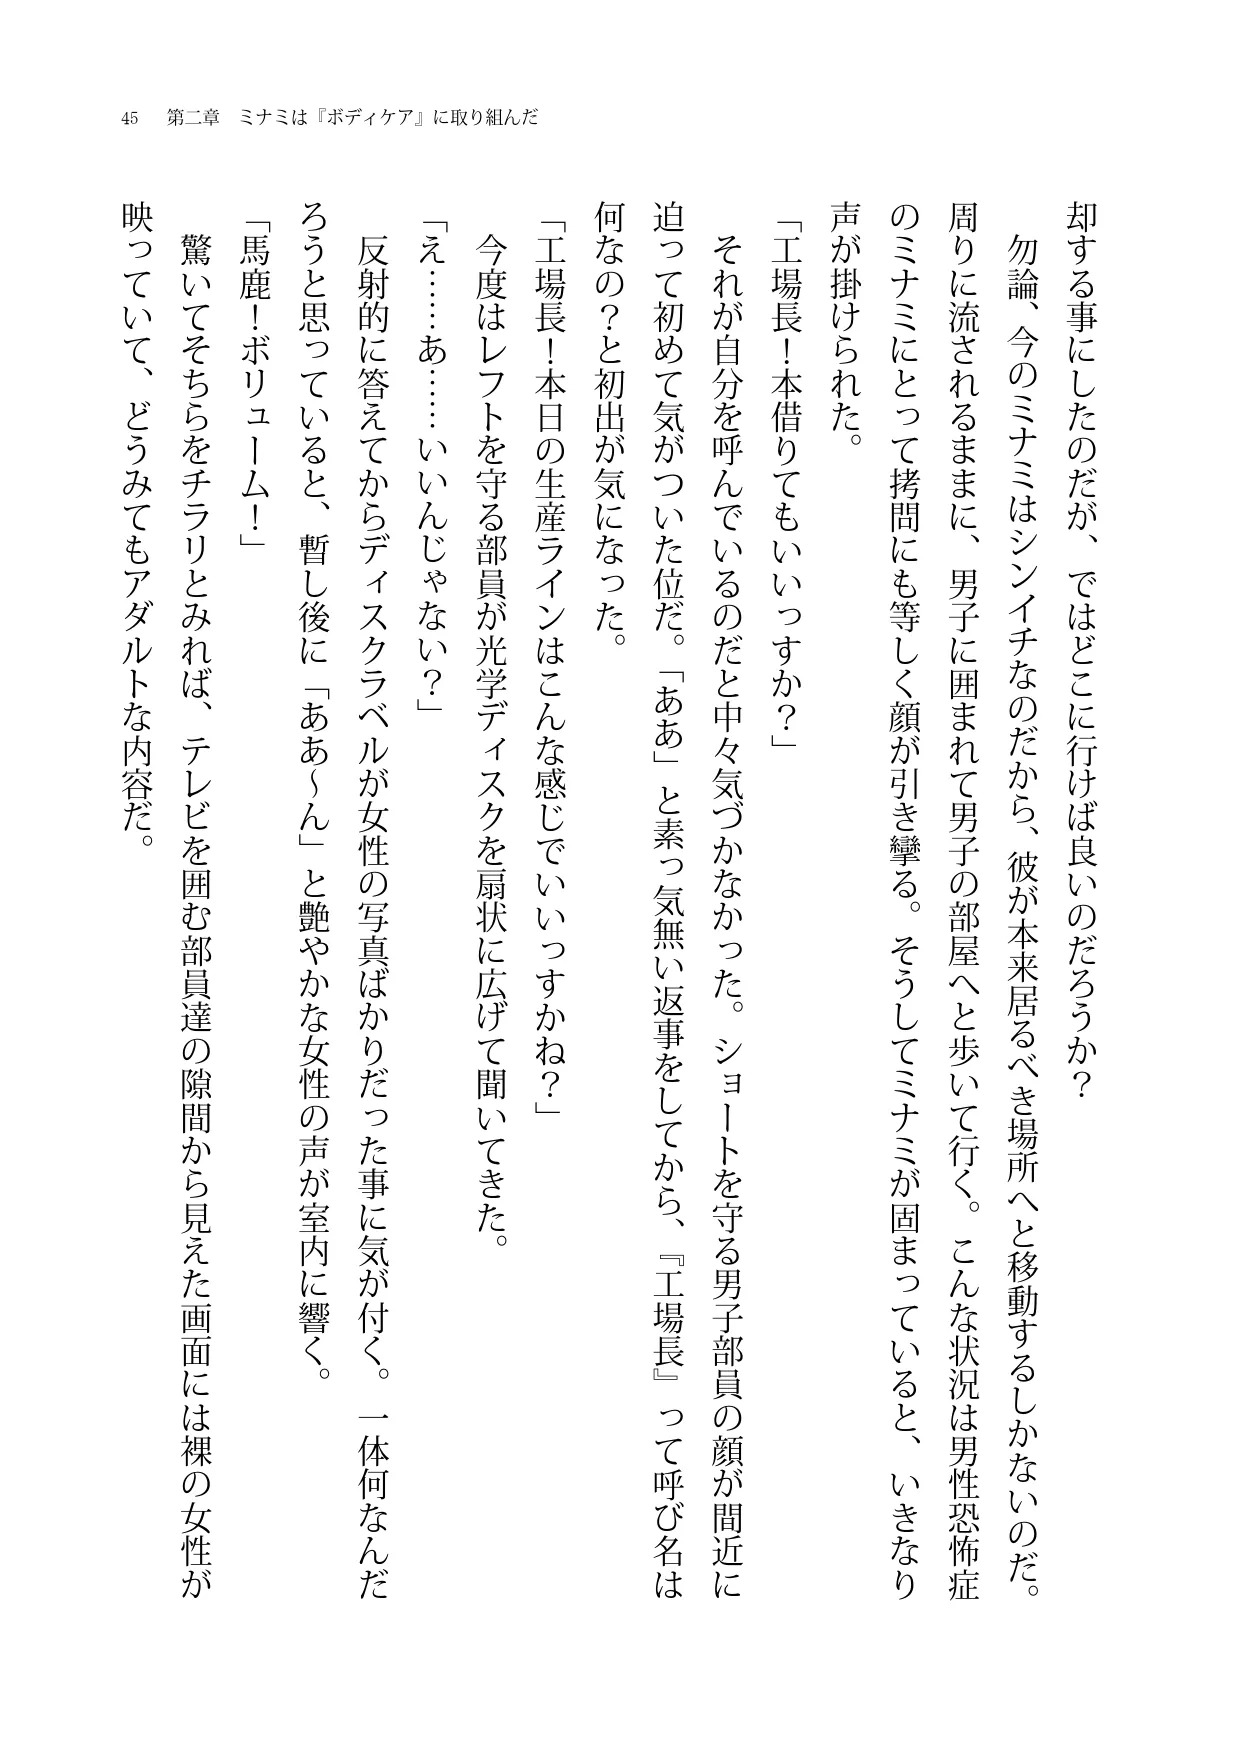 45　第二章　ミナミは『ボディケア』に取り組んだ
却する事にしたのだが、ではどこに行けば良いのだろうか？
　勿論、今のミナミはシンイチなのだから、彼が本来居るべき場所へと移動するしかないのだ。
周りに流されるままに、男子に囲まれて男子の部屋へと歩いて行く。こんな状況は男性恐怖症
のミナミにとって拷問にも等しく顔が引き攣る。そうしてミナミが固まっていると、いきなり
声が掛けられた。
「工場長！本借りてもいいっすか？」
　それが自分を呼んでいるのだと中々気づかなかった。ショートを守る男子部員の顔が間近に
迫って初めて気がついた位だ。「ああ」と素っ気無い返事をしてから、『工場長』って呼び名は
何なの？と初出が気になった。
「工場長！本日の生産ラインはこんな感じでいいっすかね？」
　今度はレフトを守る部員が光学ディスクを扇状に広げて聞いてきた。
「え……あ……いいんじゃない？」
　反射的に答えてからディスクラベルが女性の写真ばかりだった事に気が付く。一体何なんだ
ろうと思っていると、暫し後に「ああ～ん」と艶やかな女性の声が室内に響く。
「馬鹿！ボリューム！」
　驚いてそちらをチラリとみれば、テレビを囲む部員達の隙間から見えた画面には裸の女性が
映っていて、どうみてもアダルトな内容だ。